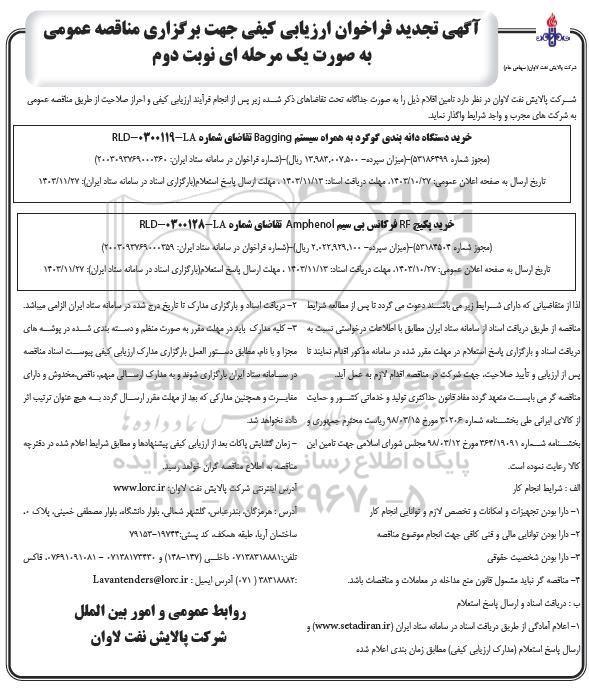 آگهی تجدید فراخوان ارزیابی کیفی جهت برگزاری مناقصه عمومی
به صورت یک مرحله ای نوبت دوم
شرکت پالایش نفت لاوان( سهامی عام)
شرکت پالایش نفت لاوان در نظر دارد تامین اقلام ذیل را به صورت جداگانه تحت تقاضاهای ذکر شده زیر پس از انجام فرآیند ارزیابی کیفی و احراز صلاحیت از طریق مناقصه عمومی
به شرکت های مجرب و واجد شرایط واگذار نماید.
خرید دستگاه دانه بندی گوگرد به همراه سیستم Bagging تقاضای شماره RLD-0300119-LA
(مجوز شماره 5318649۹)-(میزان سپرده- 13,983,007,500 ریال)-(شماره فراخوان در سامانه ستاد ایران: 2003093769000360)
تاریخ ارسال به صفحه اعلان عمومی: 1403/10/27، مهلت دریافت اسناد: 1403/11/13 ، مهلت ارسال پاسخ استعلام(بارگزاری اسناد در سامانه ستاد ایران): 1403/11/27
خرید پکیج RF فرکانس بی سیم Amphenol تقاضای شماره RLD-0300128-LA
(مجوز شماره 5318450۴)-(میزان سپرده- 2,022,929,100 ریال)-(شماره فراخوان در سامانه ستاد ایران: 2003093769000359)
تاریخ ارسال به صفحه اعلان عمومی: 1403/10/27، مهلت دریافت اسناد: 1403/11/13 ، مهلت ارسال پاسخ استعلام(بارگزاری اسناد در سامانه ستاد ایران): 1403/11/27
لذا از متقاضیانی که دارای شرایط زیر می باشند دعوت می گردد تا پس از مطالعه شرایط
مناقصه از طریق دریافت اسناد از سامانه ستاد ایران مطابق با اطلاعات درخواستی نسبت به
دریافت اسناد و بارگزاری پاسخ استعلام در مهلت مقرر شده در سامانه مذکور اقدام نمایند تا
پس از ارزیابی و تأیید صلاحیت، جهت شرکت در مناقصه اقدام لازم به عمل آید.
مناقصه گر می بایست متعهد گردد مفاد قانون حداکثری تولید و خدماتی کشور و حمایت
از کالای ایرانی طی بخشنامه شماره 30206 مورخ 98/03/15 ریاست محترم جمهوری و
بخشنامه شماره 364/19091 مورخ 98/03/12 مجلس شورای اسلامی جهت تامین این
کالا رعایت نموده است.
الف : شرایط انجام کار
۱- دارا بودن تجهیزات و امکانات و تخصص لازم و توانایی انجام کار
۲- دارا بودن توانایی مالی و فنی کافی جهت انجام موضوع مناقصه
۳- دارا بودن شخصیت حقوقی
۴- مناقصه گر نباید مشمول قانون منع مداخله در معاملات و مناقصات باشد.
ب : دریافت اسناد و ارسال پاسخ استعلام
۱- اعلام آمادگی از طریق دریافت اسناد در سامانه ستاد ایران (www.setadiran.ir) و
ارسال پاسخ استعلام (مدارک ارزیابی کیفی) مطابق زمان بندی اعلام شده
۲- دریافت اسناد و بارگزاری مدارک تا تاریخ درج شده در سامانه ستاد ایران الزامی میباشد.
۳- کلیه مدارک باید در مهلت مقرر به صورت منظم و دسته بندی شده در پوشه های
مجزا و با نام، مطابق دستور العمل بارگزاری مدارک ارزیابی کیفی پیوست اسناد مناقصه
در سامانه ستاد ایران بارگزاری شوند و به مدارک ارسالی مبهم، ناقص،مخدوش و دارای
مغایرت و همچنین مدارکی که بعد از مهلت مقرر ارسال گردد به هیچ عنوان ترتیب اثر
داده نخواهد شد.
- زمان گشایش پاکات بعد از ارزیابی کیفی پیشنهادها و مطابق شرایط اعلام شده در دفترچه
مناقصه به اطلاع مناقصه گران خواهد رسید.
آدرس اینترنتی شرکت پالایش نفت لاوان: www.lorc.ir
آدرس : هرمزگان، بندرعباس، گلشهر شمالی، بلوار دانشگاه، بلوار مصطفی خمینی، پلاک ۰،
ساختمان آریا، طبقه همکف، کد پستی: 19744-79153
تلفن: 07138318881 داخلی (147-148) و 07138173430 - 07691091081، فاکس
: 38318882 ( 071) آدرس ایمیل : Lavantenders@lorc.ir
روابط عمومی و امور بین الملل
شرکت پالایش نفت لاوان
پایگاه اطلاع رسانی مناقصه مزایده
۰۲۱-۸۸۳۴۹۶۷۰-۵